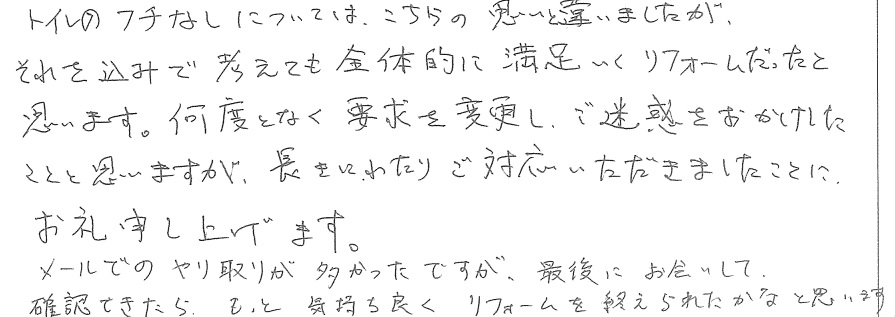 トイレのフチなしについては、こちらの思いと違いましたが、
それを込みで考えても全体的に満足いくリフォームだったと
思います。何度となく要求を変更し、ご迷惑をおかけした
ことと思いますが、長きにわたりご対応いただきましたことに、
お礼申し上げます。
メールでのやり取りが多かったですが、最後にお会いして、
確認できたら、もっと気持ち良くリフォームを終えられたかなと思います